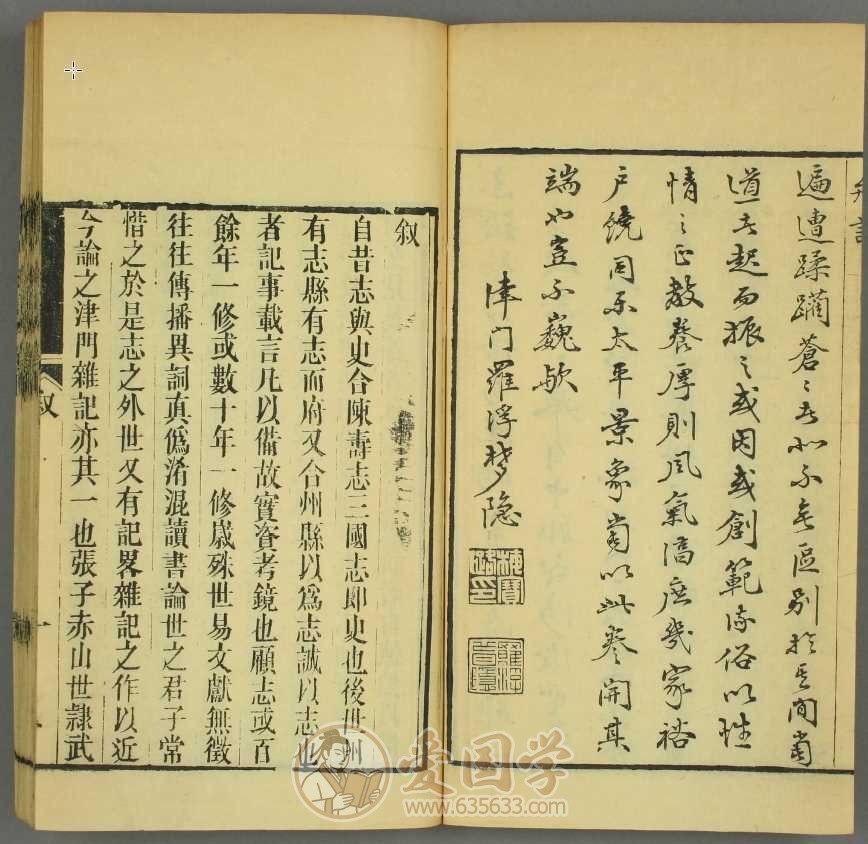 遍遭蹂躪蒼〻者不區別於其間當
道者起而振之或因或創範流俗以性
情之正教養厚則風氣淳庶幾家裕
戶饒同樂太平景象當以此卷開其
端也豈不巍歟
津门羅浮梦隐
梅寶璐印
羅浮夢隱
叙
自昔志與史合陳壽志三國志即史也後世州
有志縣有志而府又合州縣以爲志誠以志也
者記事載言凡以備故實資考鏡也顧志或百
餘年一修或數十年一修歲殊世易文獻無徵
往往傳播異詞真僞淆混讀書論世之君子常
惜之於是志之外世又有記畧雜記之作以近
今論之津門雜記亦其一也張子赤山世隸武
叙
一
爱国学
www.635633.com